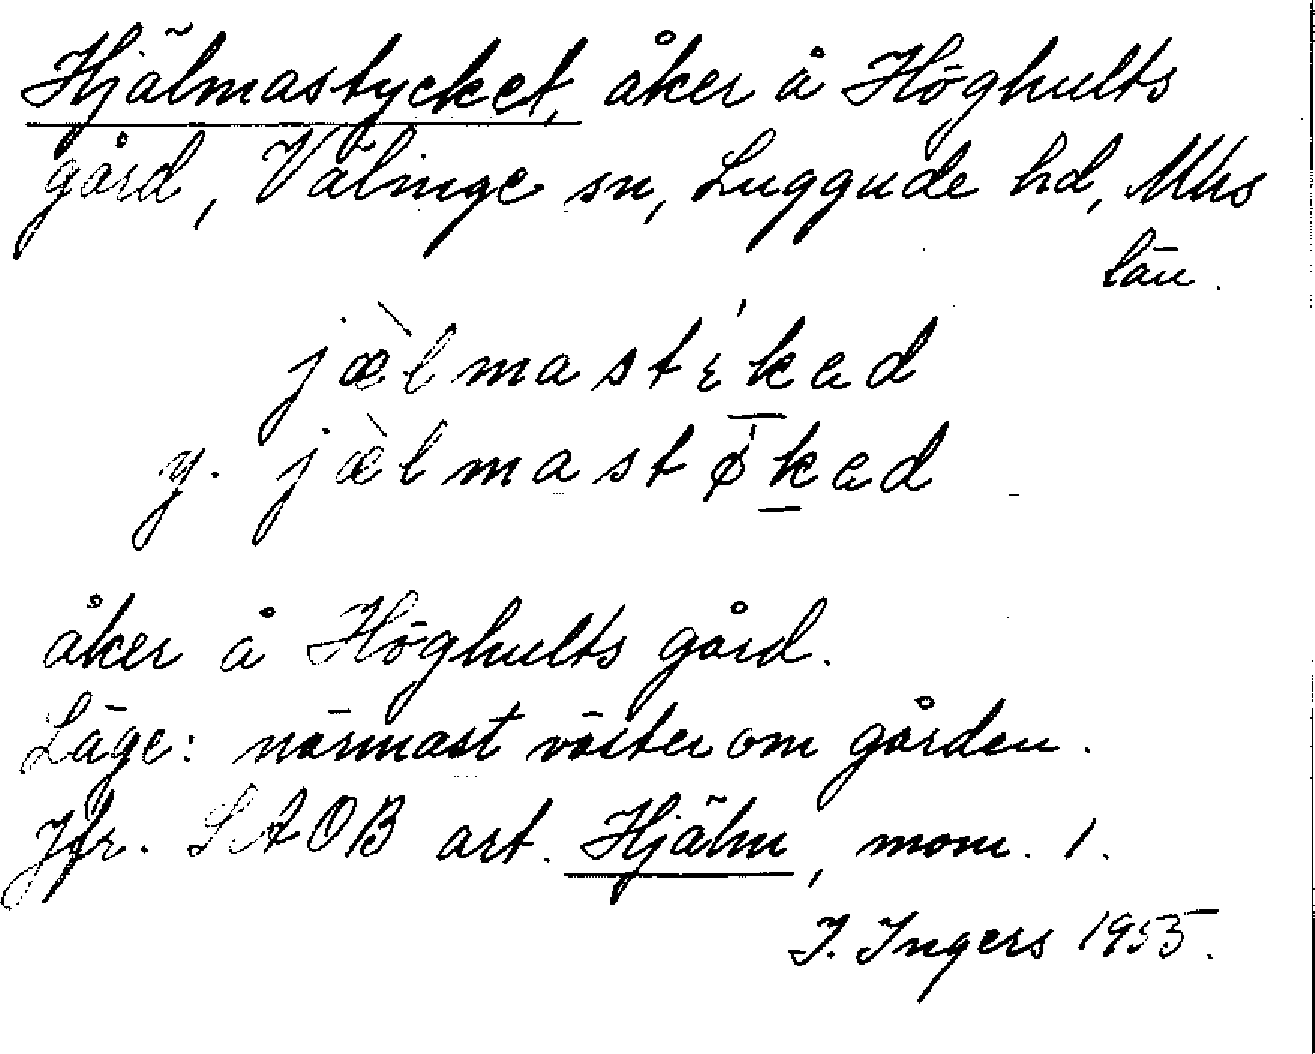 Hjälmastycket, åker å Höghults
gård, Välinge sn, Luggude hd, Mhs
län.
jæ̀lmastíkad
y. jæ̀lmastø̄́kad
åker å Höghults gård.
Läge: närmast väster om gården.
Jfr. SAOB art. Hjälm, mom. 1.
I. Ingers 1955.